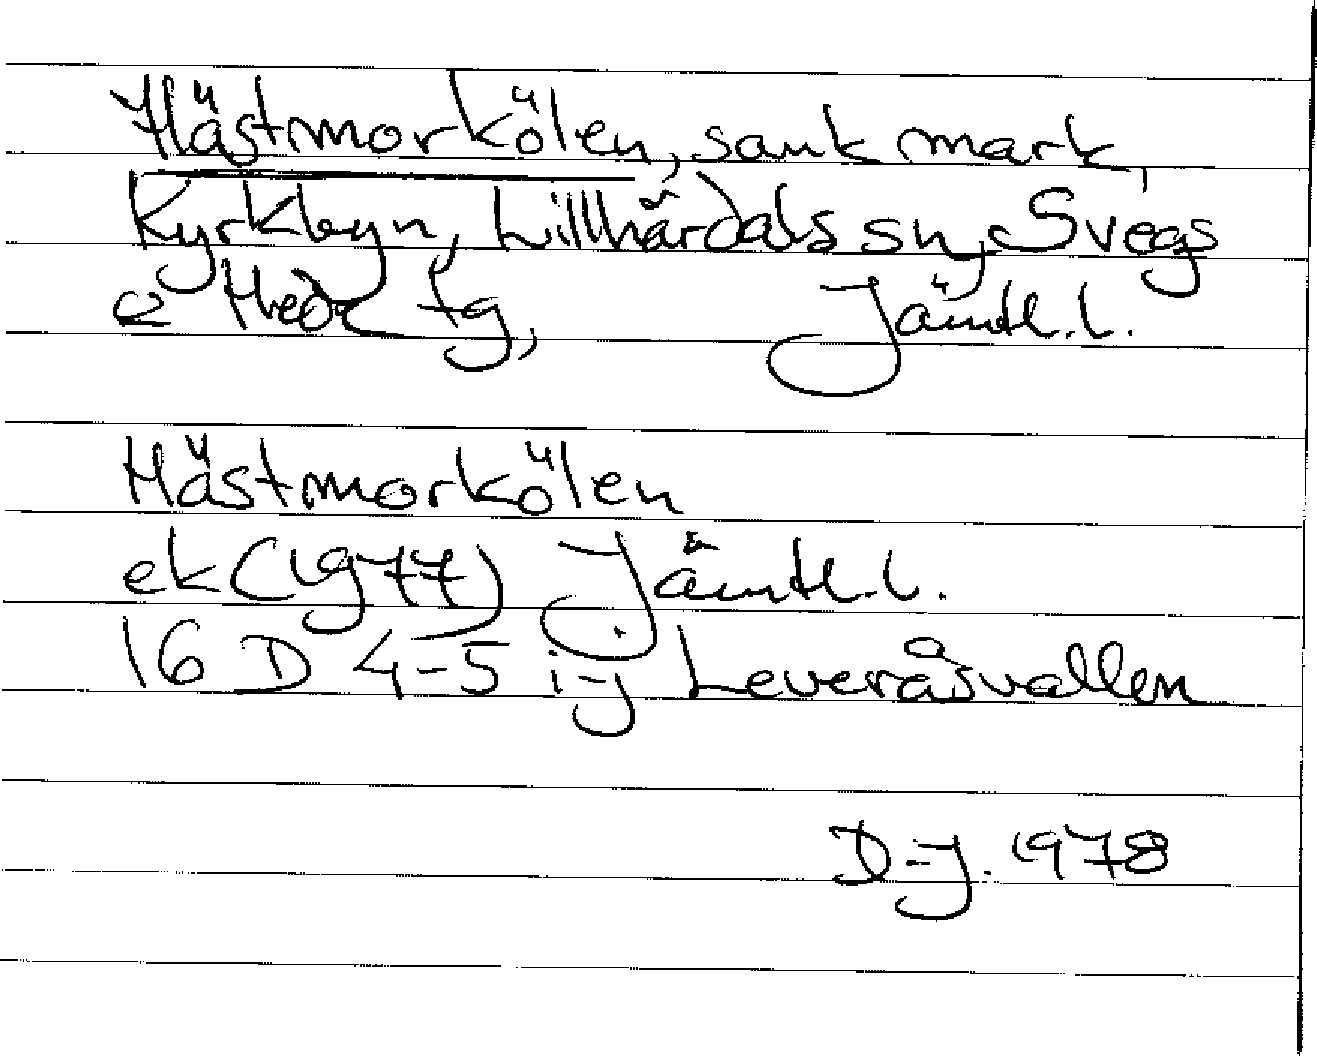 Hästmorkölen, sank mark,
Kyrkbyn, Lillhärdals sn, Svegs
o Hede tg, Jämtl.l.
Hästmorkölen
ek (1977) Jämtl.l.
16 D 4-5 i-j Leveråsvallen
D-J. 1978